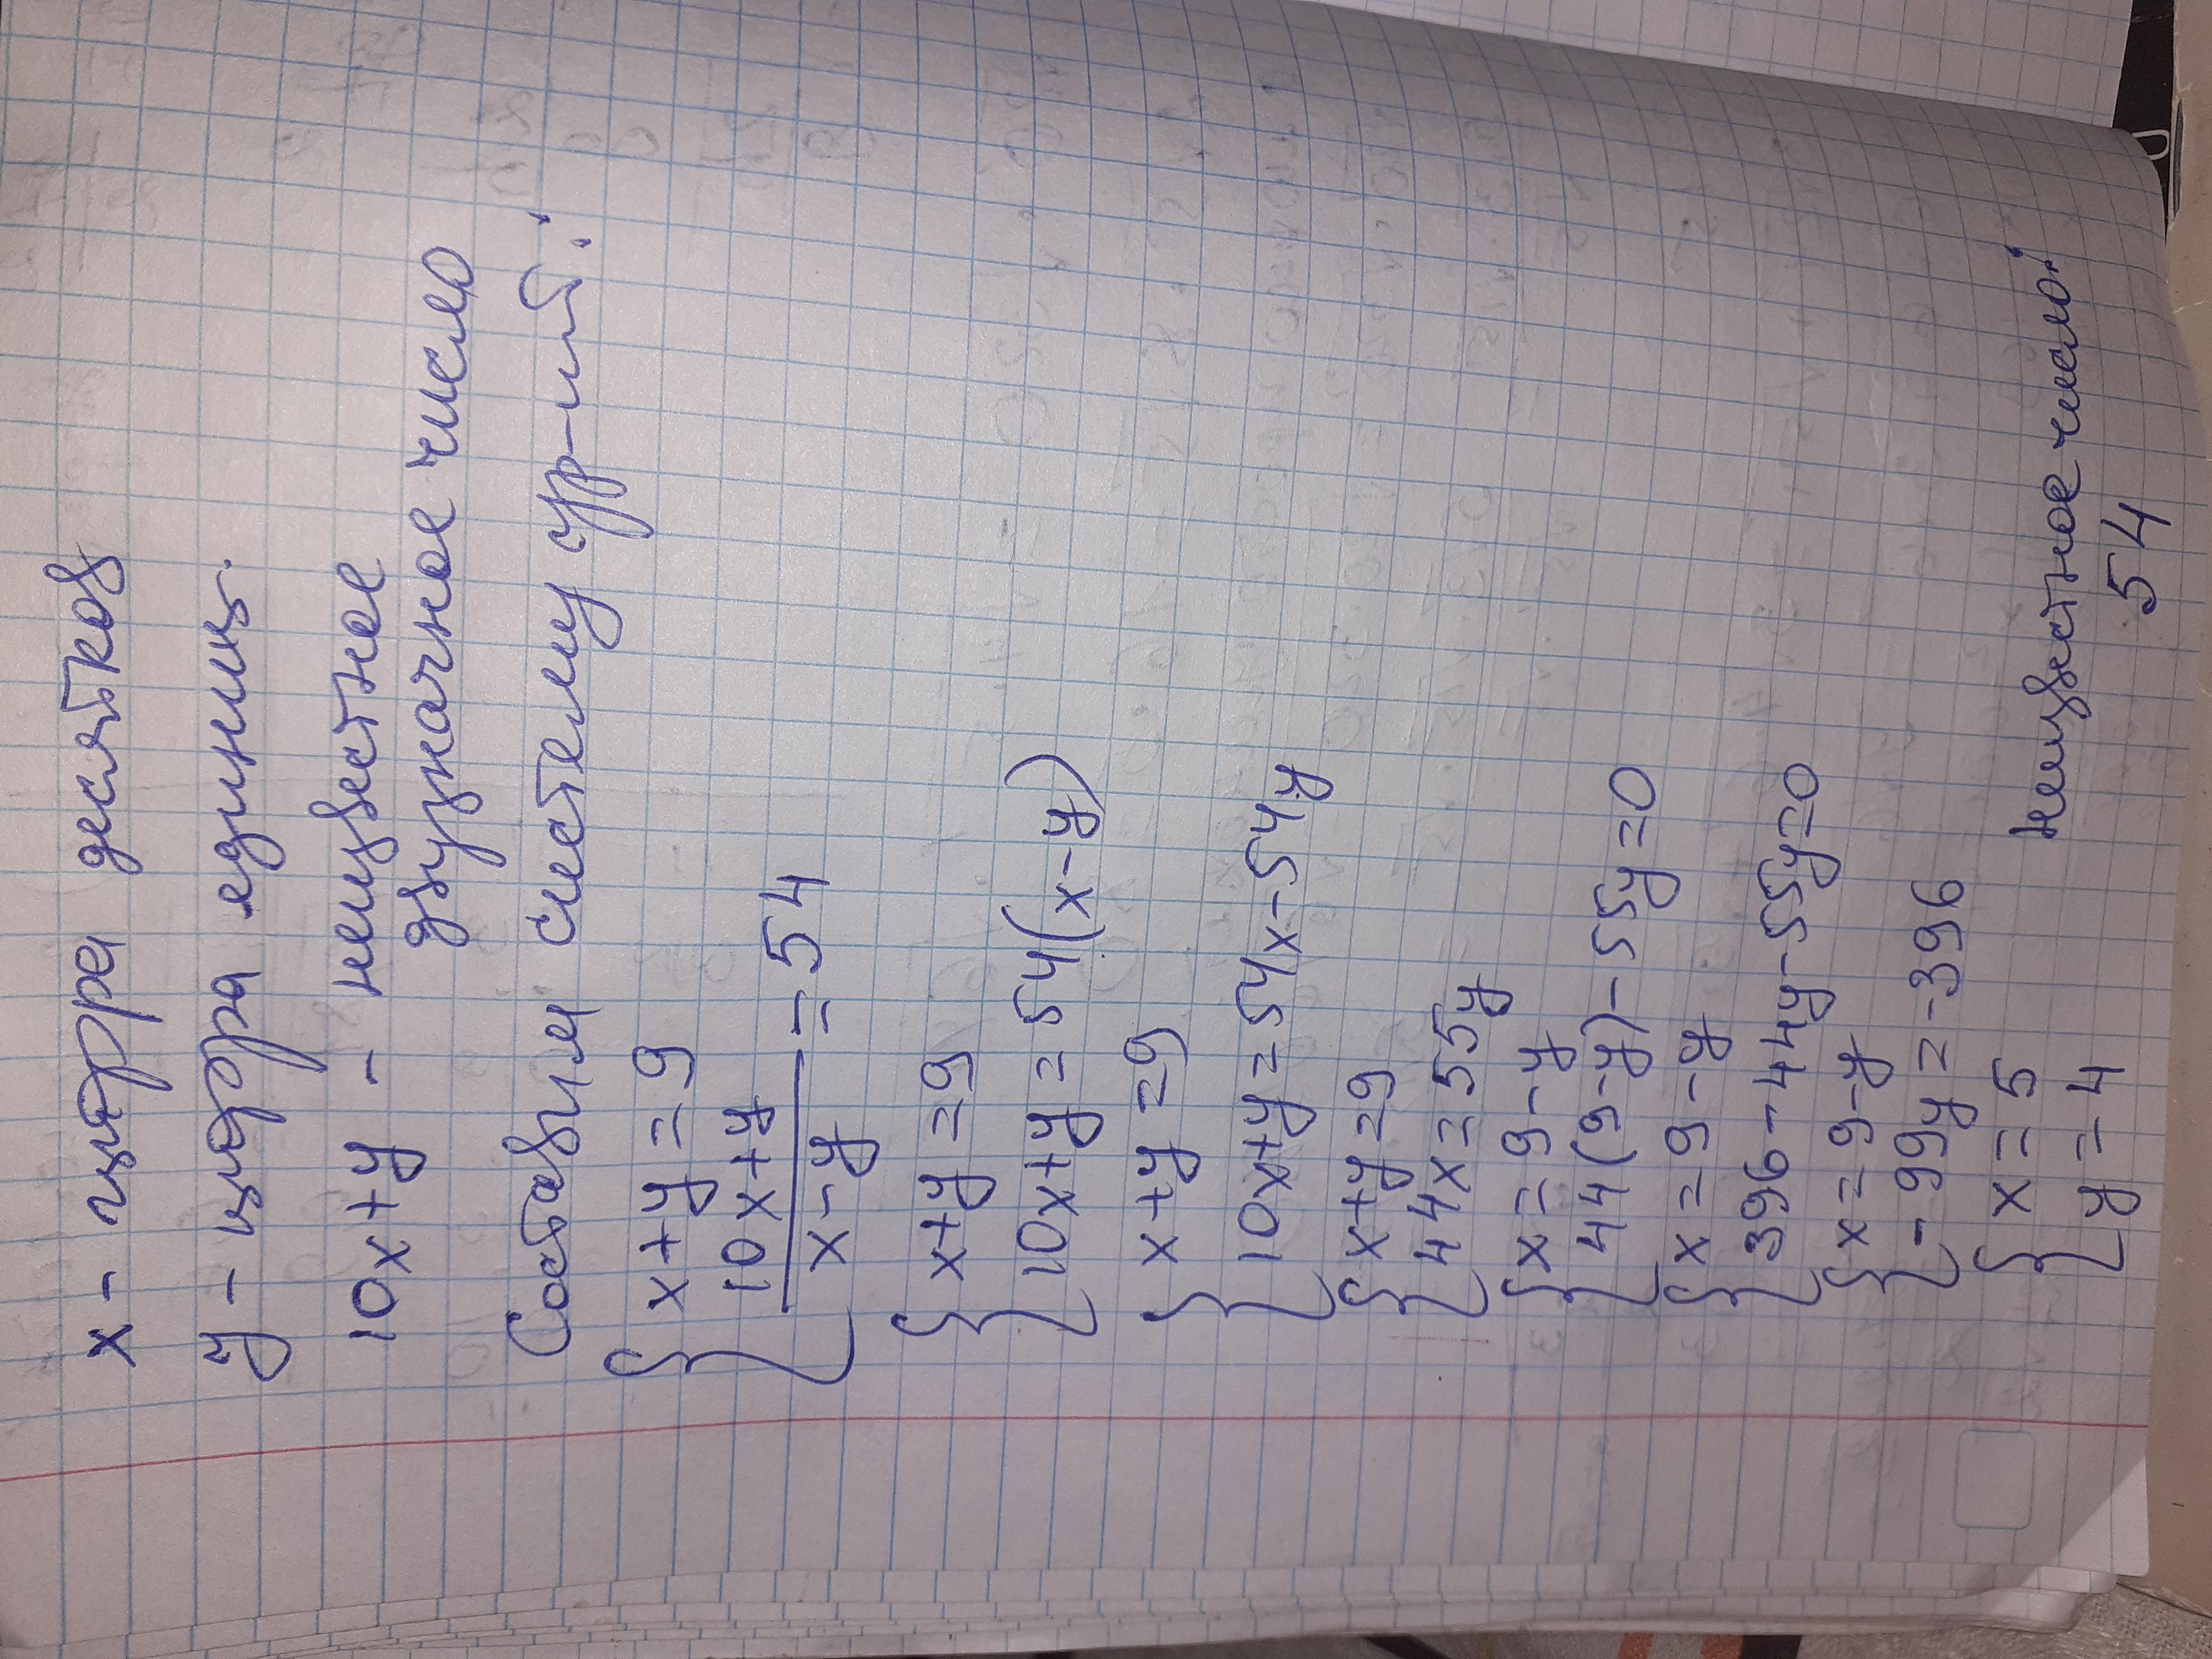 x - цифра десятков
y - цифра единиц.
10x+y - неизвестное
двузначное число
Составим систему ур-ий:
x+y=9
10x+y
x-y
=54
x+y=9
10x+y=54(x-y)
x+y=9
10x+y=54x-54y
x+y=9
44x=55y
x=9-y
44(9-y)-55y=0
x=9-y
396-44y-55y=0
x=9-y
-99y=-396
x=5
y=4
неизвестное число:
54